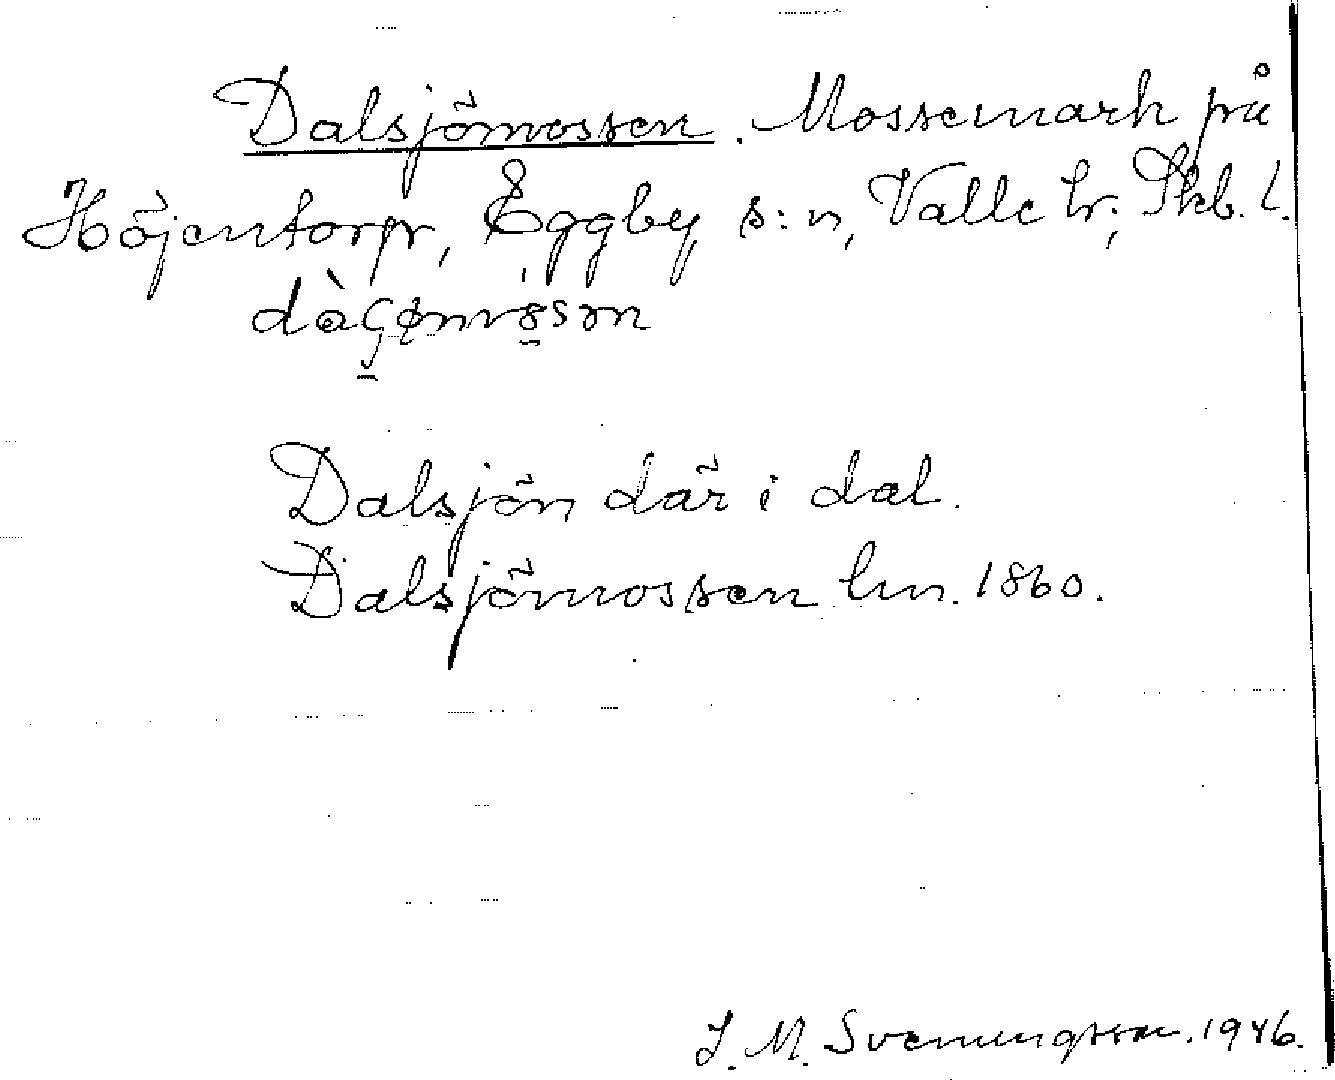 Dalsjömossen. Mossemark på
Höjentorp, Eggby s:n, Valle hr; Skb. l.
Dalsjön där i dal.
Dalsjömossen hm. 1860.
J. M. Svenungsson. 1946.